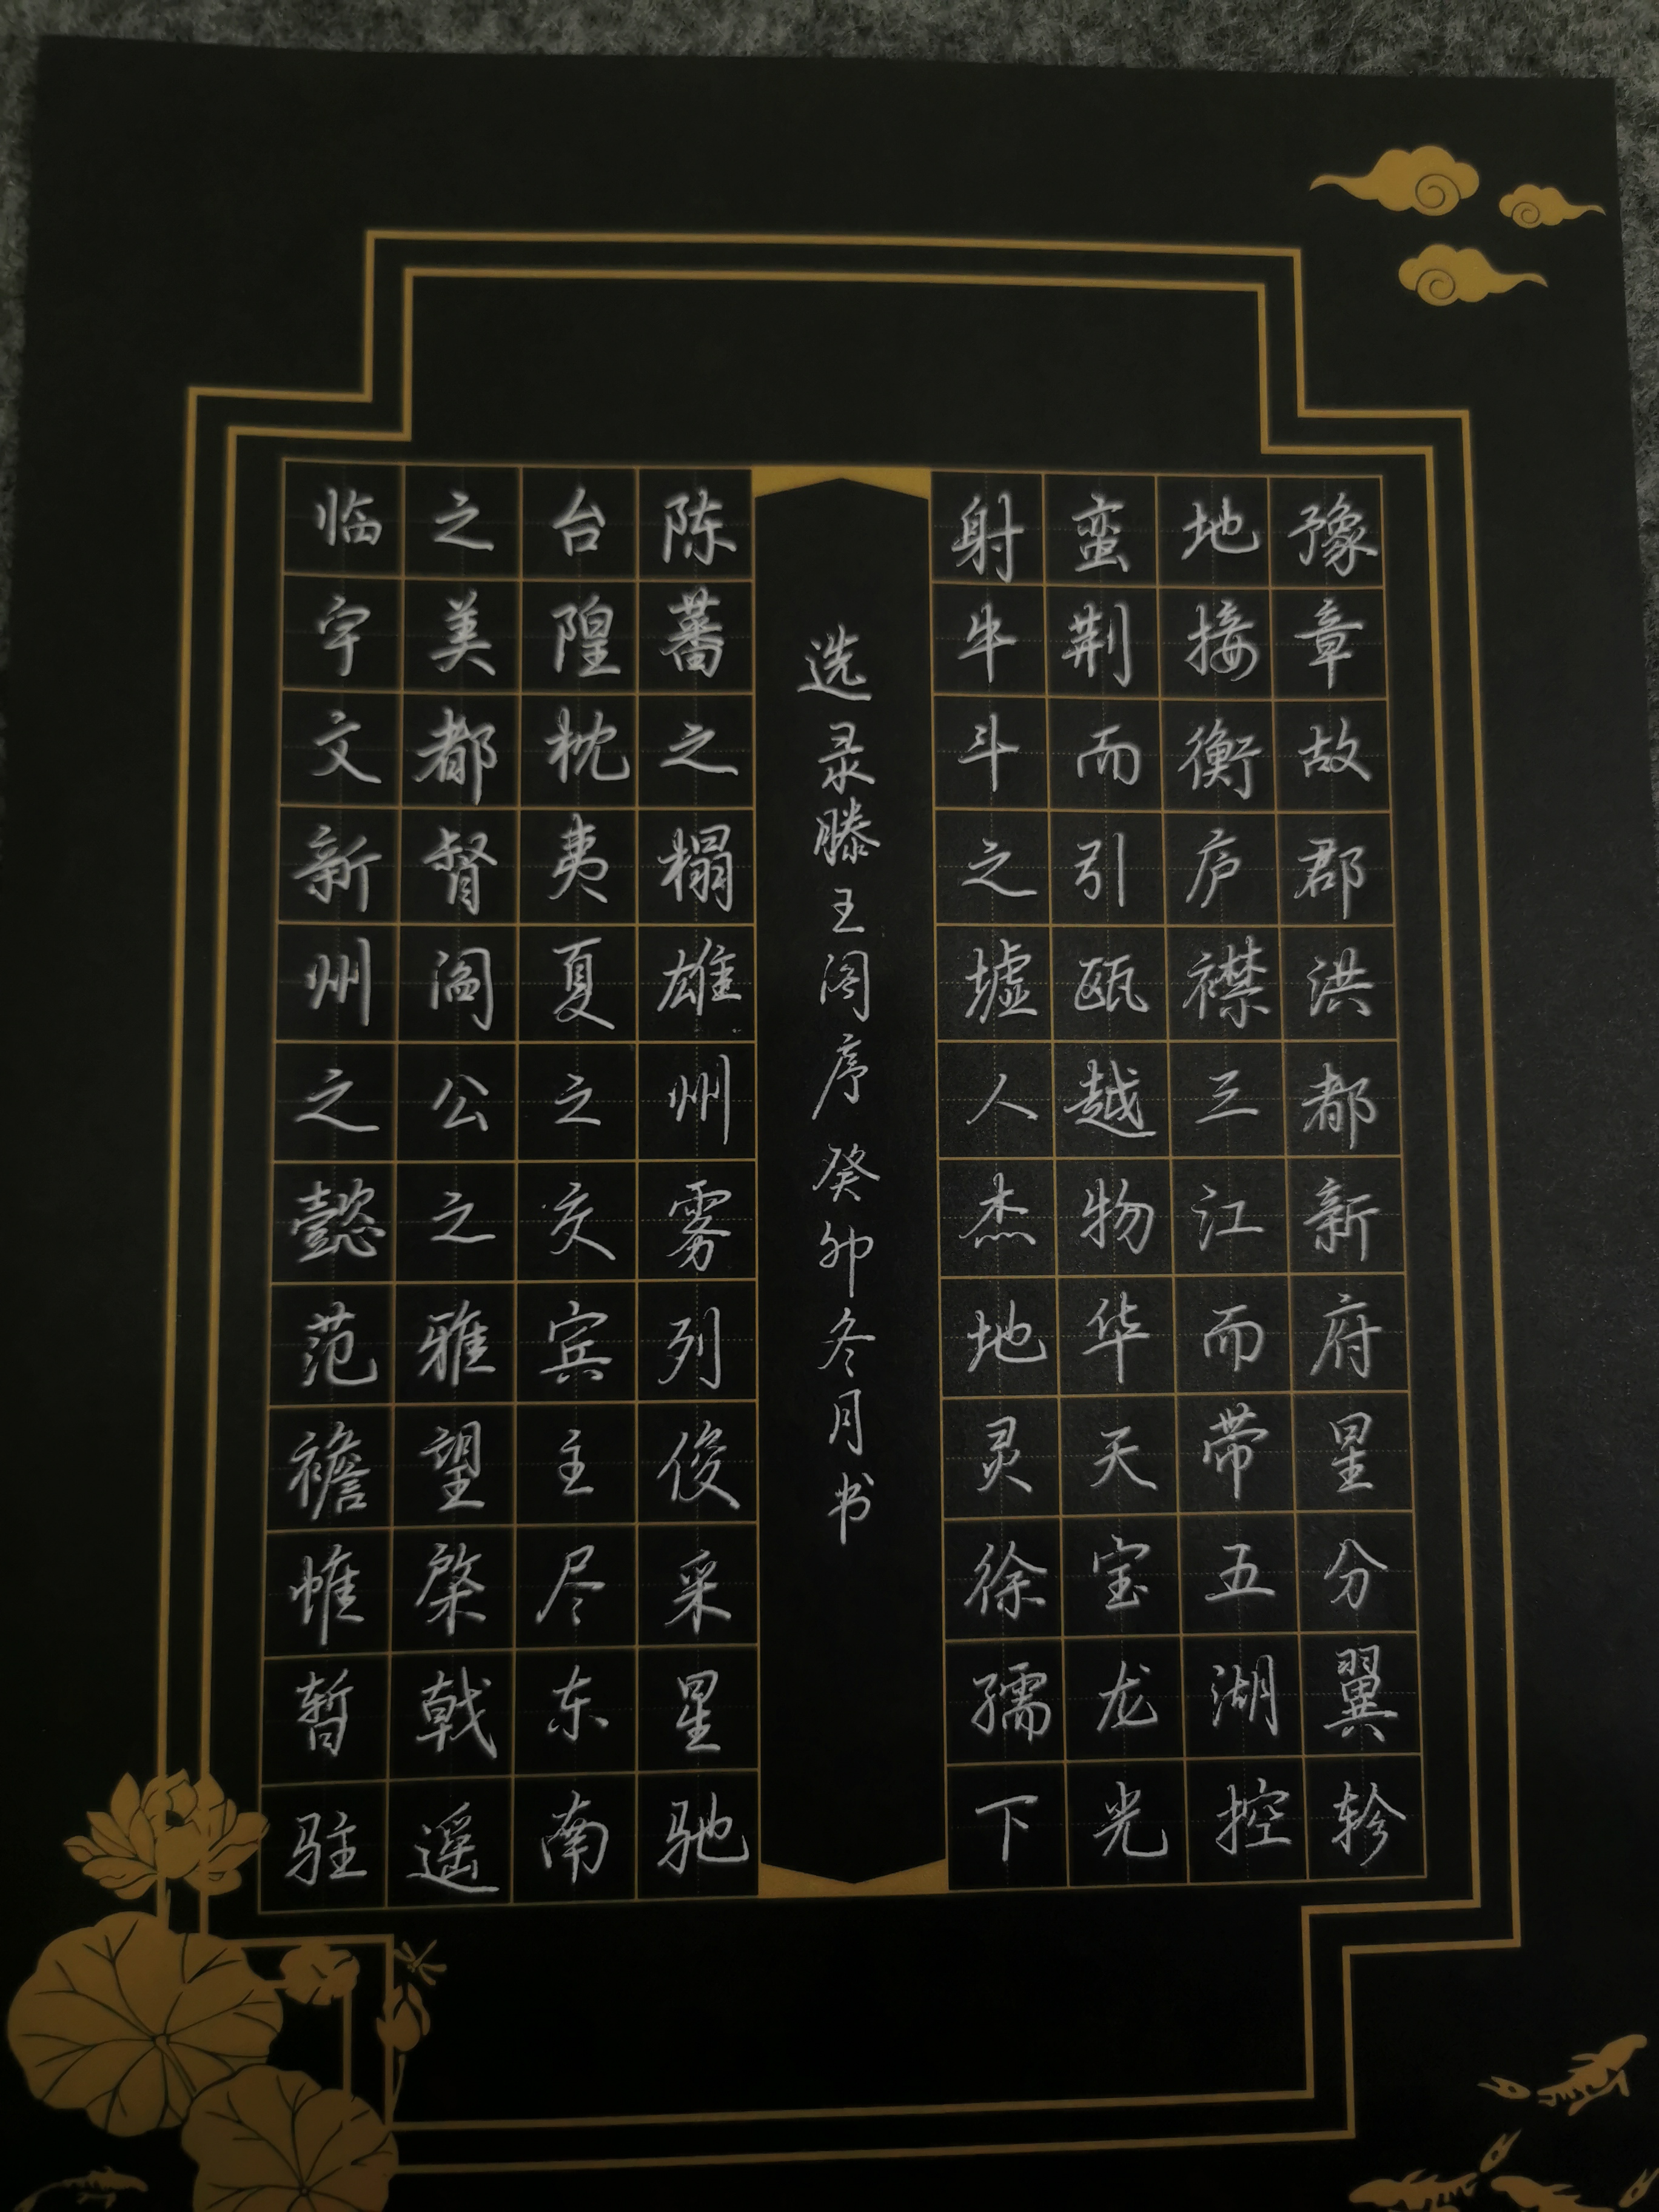 豫章故郡洪都新府星分翼轸
地接衡庐襟三江而带五湖控
蛮荆而引瓯越物华天宝龙光
射牛斗之墟人杰地灵徐孺下
选录滕王阁序癸卯冬月书
陈蕃之榻雄州雾列俊采星驰
台隍枕夷夏之交宾主尽东南
之美都督阎公之雅望棨戟遥
临宇文新州之懿范襜帷暂驻